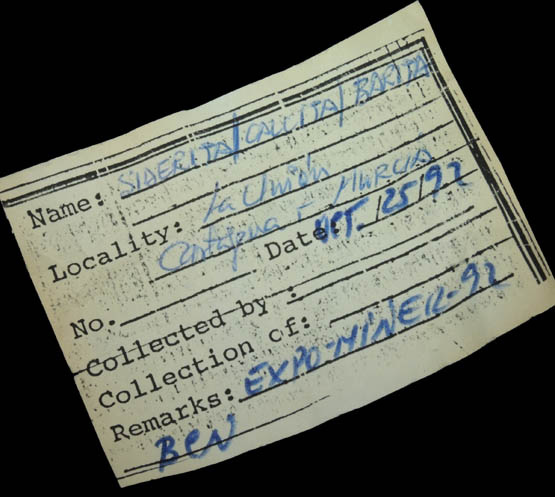 Name: SIDERITA/CALCITA/BARITA
Locality: La Unión
Cartagena - MURCIA
Date OCT./25/92
No.
Collected by:
Collection of:
Remarks: EXPO-MINER-92
BCN